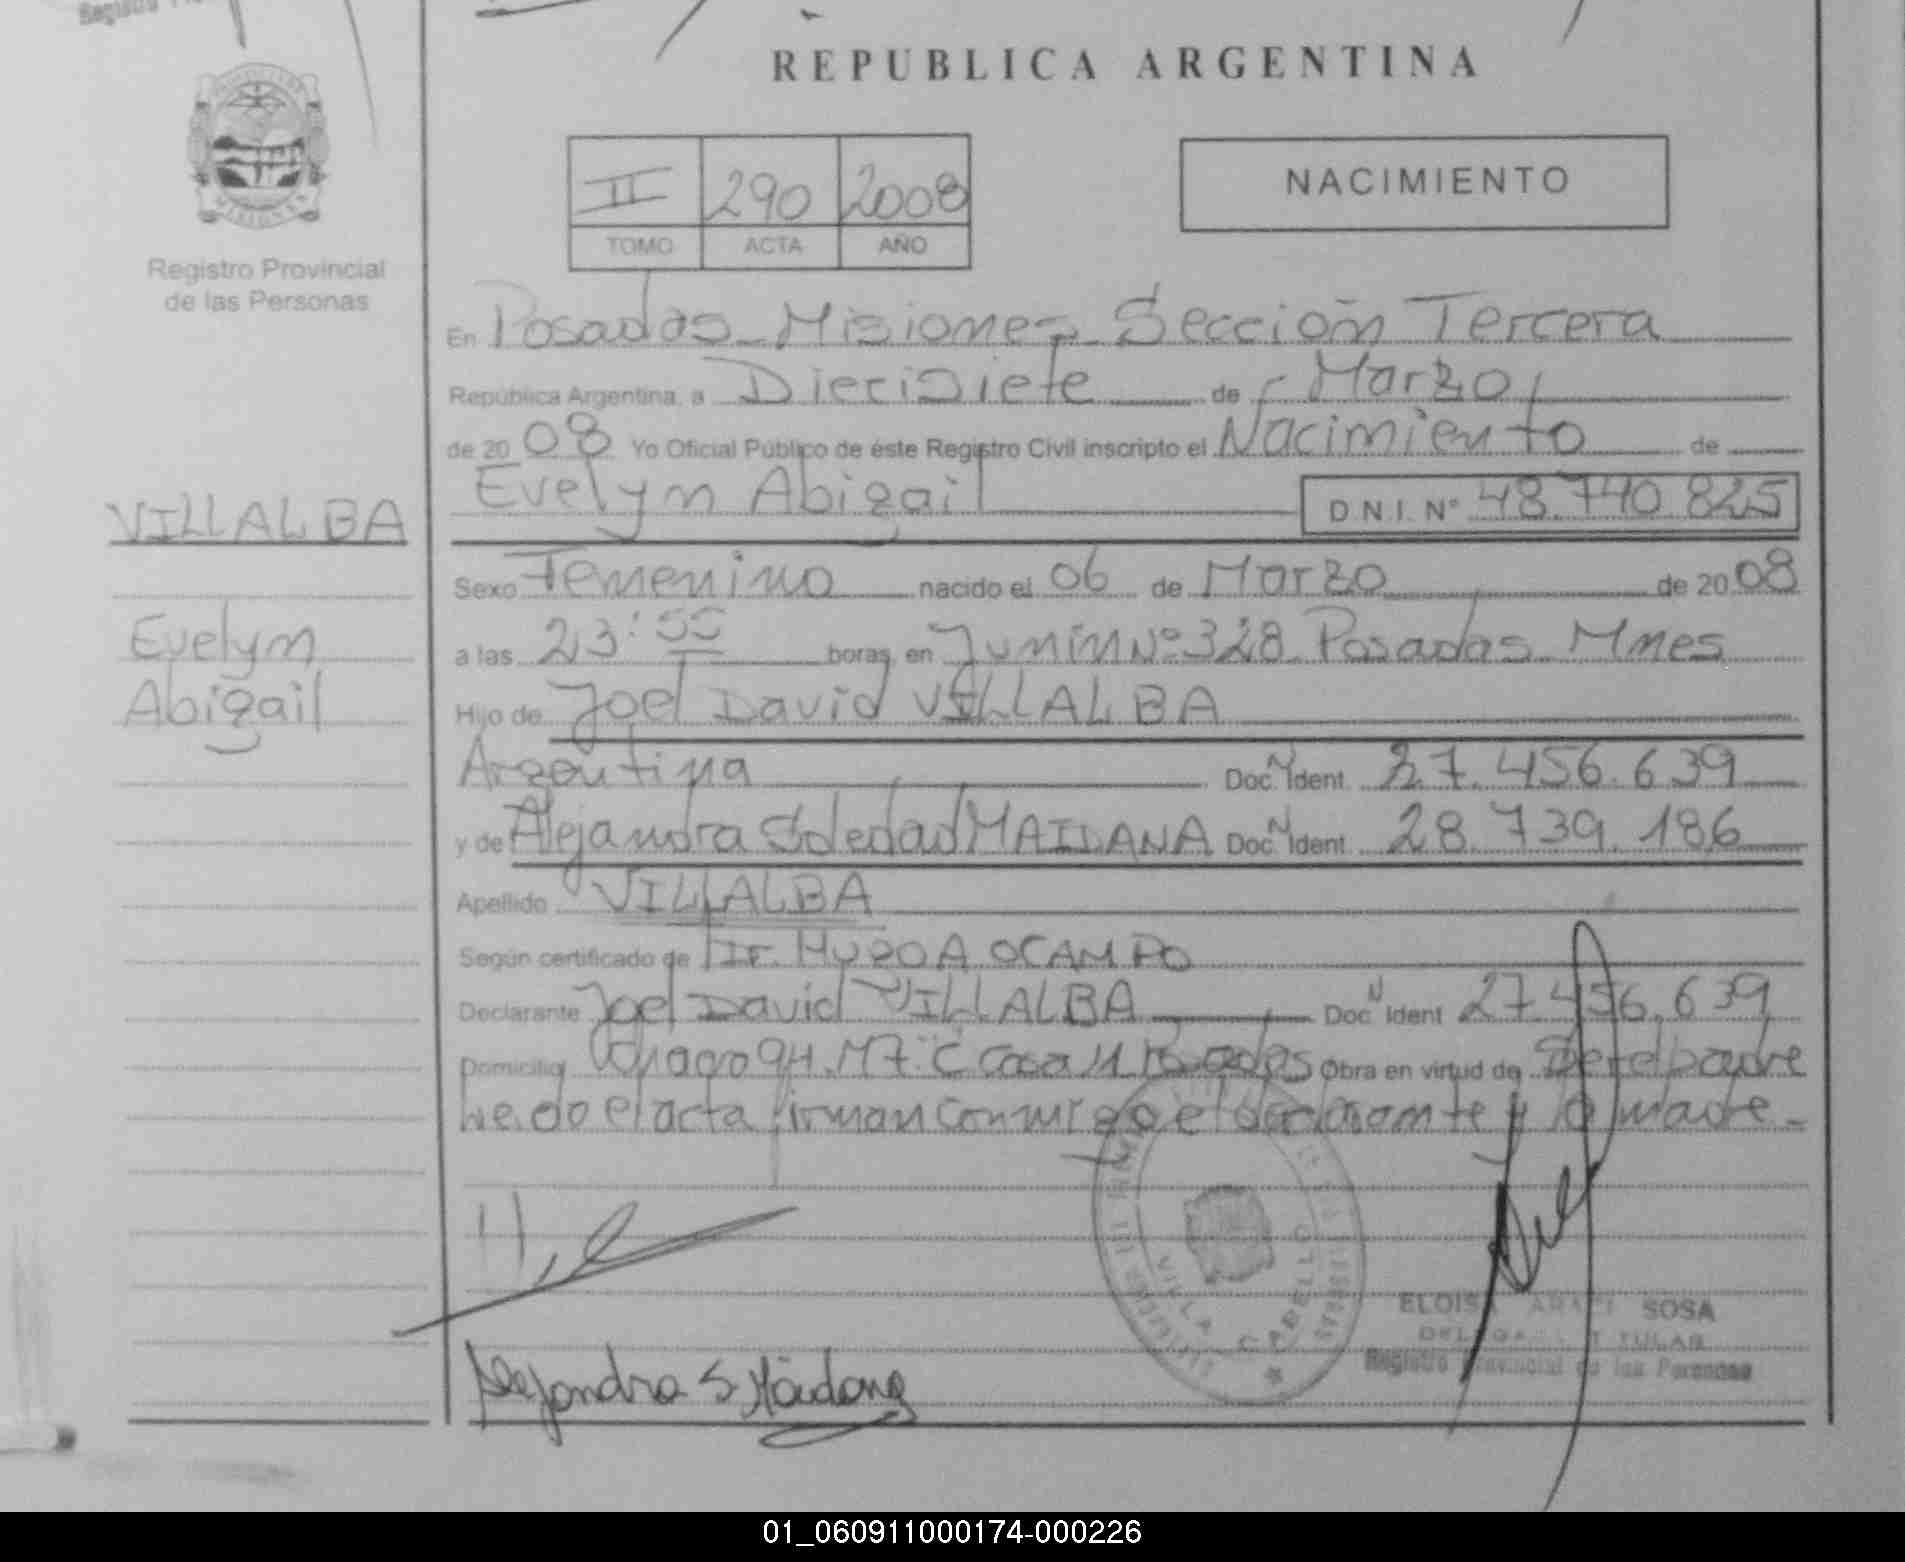 REPUBLICA ARGENTINA
II 290 2008
TOMO ACTA AÑO
NACIMIENTO
Registro Provincial
de las Personas
En Posadas Misiones Sección Tercera
República Argentina, a Diecisiete de Marzo
de 20 08 Yo Oficial Público de éste Registro Civil inscripto el Nacimiento de
Evelym Abigail D.N.I. Nº 48.740.825
VILLALBA
Evelym
Abigail
Sexo Femenino nacido el 06 de Marzo de 20 08
a las 23:55 horas en Junin Nº 328 Posadas Mnes
Hijo de Joel David VILLALBA
Argentina Doc. N Ident. 27.456.639
y de Alejandra Soledad MAIDANA Doc. N Ident. 28.739.186
Apellido VILLALBA
Según certificado de HUGO A OCAMPO
Declarante Joel David VILLALBA Doc. N Ident 27.456.639
Domicilio Casa 11 Posadas Obra en virtud de Ser el padre
leido el acta firman conmigo el declarante y la madre
Alejandra S Maidana
VILLA CABELLO
ELOISA SOSA
TITULAR
Registro Provincial de las Personas
01_060911000174-000226